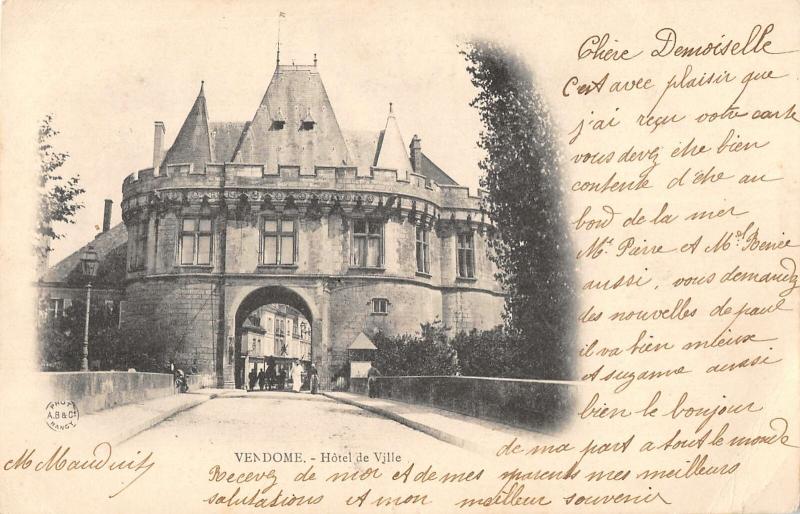 Chère Demoiselle
C'est avec plaisir que
j'ai reçu votre carte
vous devez être bien
contente d'être au
bord de la mer
Mr Pierre et Melle Renée
aussi, vous demandez
des nouvelles de paul
il va bien mieux
et suzanne aussi
bien le bonjour
de ma part a tout le monde
VENDOME. - Hôtel de Ville
PHOT
A.B & Cie
NANCY
M Mauduit
Recevez de moi et de mes parents mes meilleurs
salutations et mon meilleur souvenir